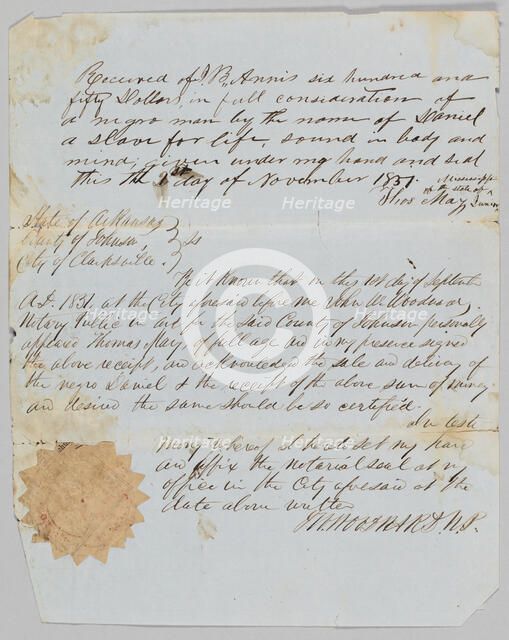 Received of J. B. Annis six hundred and
fifty Dollars, in full consideration of
a negro man by the name of Daniel
a slave for life, sound in body and
mind; given under my hand and seal
this the 1st day of November 1851.
Mississippi
of the state of
Thos May Junior
State of Arkansas
County of Johnson
City of Clarksville } ss
Be it known that on this 1st day of Septembr
A.D. 1851, at the City aforesaid before me John W. Woodward
Notary Public in and for the said County of Johnson personally
appeared Thomas May, of full age and in my presence signed
the above receipt, and acknowledged the sale and delivery of
the negro Daniel & the receipt of the above sum of money
and desired the same should be so certified.
In testi
mony whereof I hereto set my hand
and affix the notarial seal at my
office in the City aforesaid at the
date above written
WOODWARD. N.P.
Heritage
Heritage
Heritage
Heritage
Heritage
Heritage
Heritage
Heritage